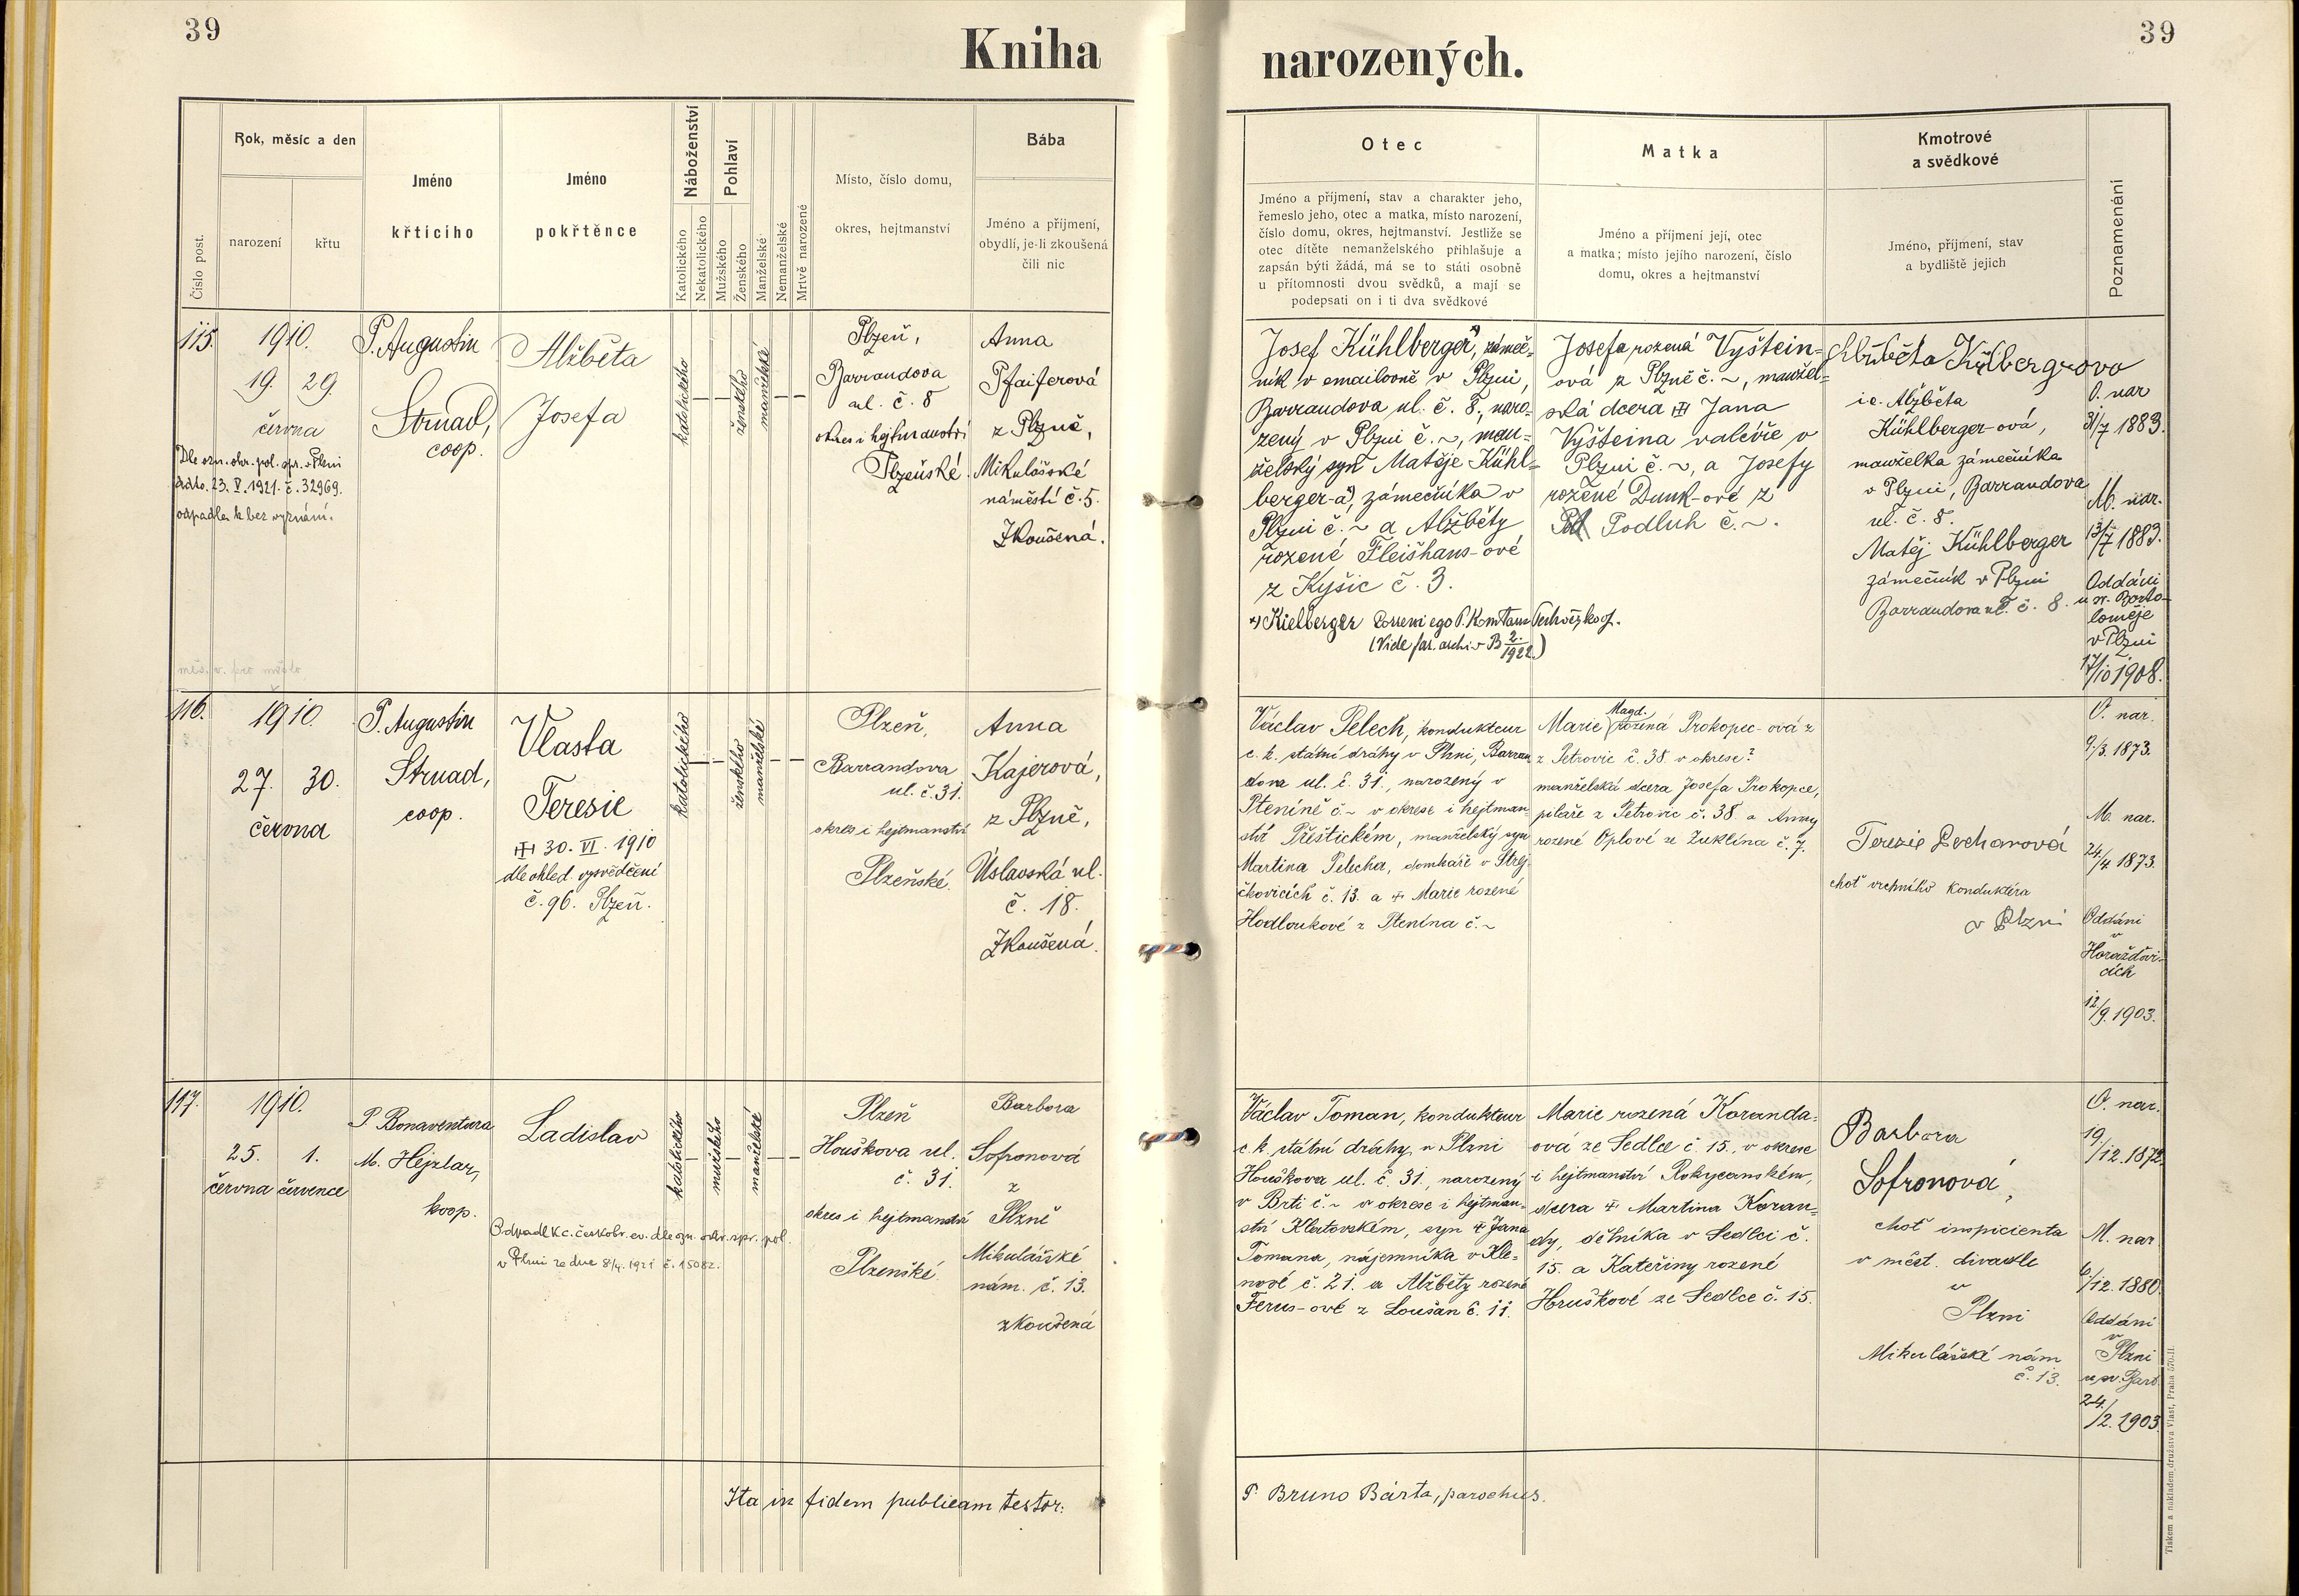 39
Kniha
narozených.
39
Číslo post.
Rok, měsíc a den
narození
křtu
Jméno
křtícího
Jméno
pokřtěnce
Náboženství
Katolického
Nekatolického
Pohlaví
Mužského
Ženského
Manželské
Nemanželské
Mrtvě narozené
Místo, číslo domu,
okres, hejtmanství
Bába
Jméno a příjmení,
obydlí, je-li zkoušená
čili nic
Otec
Jméno a příjmení, stav a charakter jeho,
řemeslo jeho, otec a matka, místo narození,
číslo domu, okres, hejtmanství. Jestliže se
otec dítěte nemanželského přihlašuje a
zapsán býti žádá, má se to státi osobně
u přítomnosti dvou svědků, a mají se
podepsati on i ti dva svědkové
Matka
Jméno a příjmení její, otec
a matka; místo jejího narození, číslo
domu, okres a hejtmanství
Kmotrové
a svědkové
Jméno, příjmení, stav
a bydliště jejich
Poznamenání
115.
1910.
19. 29.
června
Dle ozn. okr. pol. spr. v Plzni
ddto. 23. V. 1921. č. 32969.
odpadla k bez vyznání.
P. Augustin
Strnad,
coop.
Alžběta
Josefa
katolického
ženského
manželské
Plzeň,
Barrandova
ul. č. 8
okres i hejtmanství
Plzeňské.
Anna
Pfaiferová
z Plzně,
Mikulášské
náměstí č. 5.
Zkoušená.
Josef Kühlberger, zámeč-
ník v emailovně v Plzni,
Barrandova ul. č. 8., naro-
zený v Plzni č. ~, man-
želský syn Matěje Kühl-
berger-a, zámečníka v
Plzni č. ~ a Alžběty
rozené Fleišhans-ové
z Kyšic č. 3.
Kielberger Correxi ego P.
(Vide far. archiv B 2./1922.)
Josefa rozená Vyštein-
ová z Plzně č. ~, manžel-
ská dcera Jana
Vyšteina valéře v
Plzni č. ~, a Josefy
rozené Dunk-ové z
Podluh č. ~.
Alžběta
i.e. Alžběta
Kühlberger-ová,
manželka zámečníka
v Plzni, Barrandova
ul. č. 8.
Matěj Kühlberger
zámečník v Plzni
Barrandova ul. č. 8.
O. nar
31/7 1883.
M. nar.
13/7 1883.
Oddáni
u sv. Barto-
loměje
v Plzni
17/10 1908.
116.
1910.
27. 30.
června
P. Augustin
Strnad,
coop.
Vlasta
Teresie
30. VI. 1910
dle ohled. vysvědčení
č. 96. Plzeň.
katolického
ženského
manželské
Plzeň,
Barrandova
ul. č. 31.
okres i hejtmanství
Plzeňské.
Anna
Kajerová,
z Plzně,
Úslavská ul.
č. 18.
Zkoušená.
Václav Pelech, kondukteur
c. k. státní dráhy v Plzni, Barran
dova ul. č. 31., narozený v
Pteníně č. ~ v okrese i hejtman-
ství Přeštickém, manželský syn
Martina Pelecha, domkáře v Strej-
čkovicích č. 13. a Marie rozené
Hodloukové z Ptenína č. ~
Marie Magd. rozená Prokopec-ová z
z Petrovic č. 38. v okrese?
manželská dcera Josefa Prokopce,
pilaře z Petrovic č. 38. a Anny
rozené Oplové ze Zuklína č. 7.
Terezie
choť vrchního konduktéra
v Plzni
O. nar.
9/3. 1873.
M. nar.
24/4 1873.
Oddáni
v
Horažďovi-
cích
12/9. 1903.
117.
1910.
25. 1.
června července
P. Bonaventura
M. Hejzlar,
koop.
Ladislav
Odpadl k c. českobr. ev. dle ozn. okr. spr. pol.
v Plzni ze dne 8/4. 1921 č. 15082.
katolického
mužského
manželské
Plzeň
Houškova ul.
č. 31.
okres i hejtmanství
Plzeňské.
Barbora
Sofronová
z
Plzně
Mikulášské
nám. č. 13.
zkoušená
Václav Toman, kondukteur
c. k. státní dráhy, v Plzni
Houškova ul. č. 31., narozený
v Brti č. ~ v okrese i hejtman-
ství Klatovském, syn Jana
Tomana, nájemníka v Kle-
nové č. 21. a Alžběty rozené
Ferus-ové z Loužan č. 11.
Marie rozená Koranda-
ová ze Sedlce č. 15., v okrese
i hejtmanství Rokycanském,
dcera Martina Koran-
dy, dělníka v Sedlci č.
15. a Kateřiny rozené
Hruškové ze Sedlce č. 15.
Barbora
Sofronová,
choť inspicienta
v měst. divadle
v
Plzni
Mikulášské nám
č. 13.
O. nar.
19./12. 1872.
M. nar
6/12. 1880.
Oddáni
v
Plzni
u sv. Bart.
24./2. 1903.
Ita in fidem publicam testor:
P. Bruno Bárta, parochus.
Tiskem a nákladem družstva Vlast, Praha 570-II.